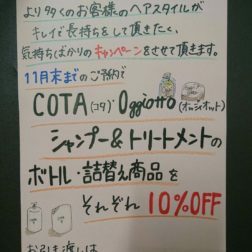 より多くのお客様のヘアスタイルが
キレイで長持ちをして頂きたく、
気持ちばかりのキャンペーンをさせて頂きます。
11月末までのご予約で
COTA(コタ) Oggiotto(オッジィオット)
シャンプー&トリートメントの
ボトル・詰替え商品を
それぞれ 10%OFF
お引き渡しは